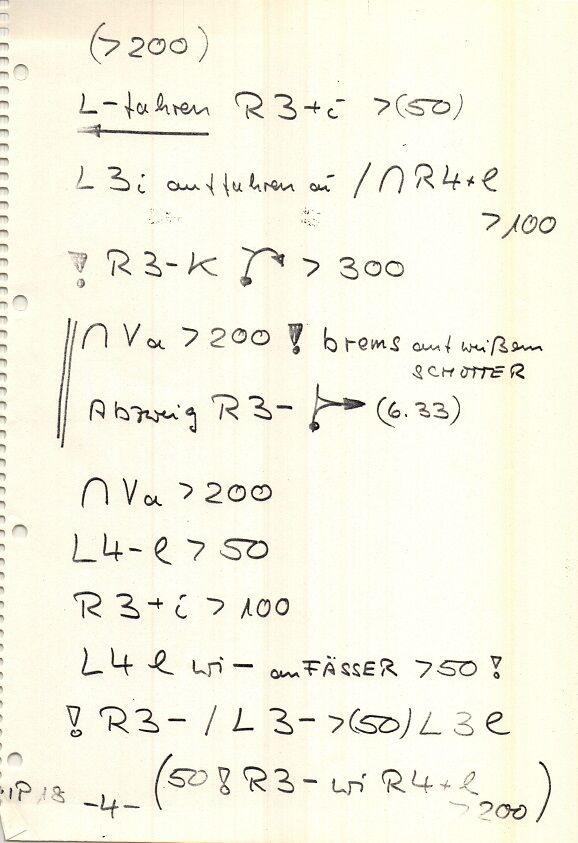 (>200)
L-fahren R3+i >(50)
L3i auffahren auf / ∩ R4+l
>100
! R3-K > 300
∩ Va >200 ! brems auf weißem
SCHOTTER
Abzweig R3- (6.33)
∩ Va >200
L4-l >50
R3+i >100
L4 l wi- an FÄSSER >50 !
! R3- / L3- >(50) L3l
(50 ! R3- wi R4+l
>200)
-4-